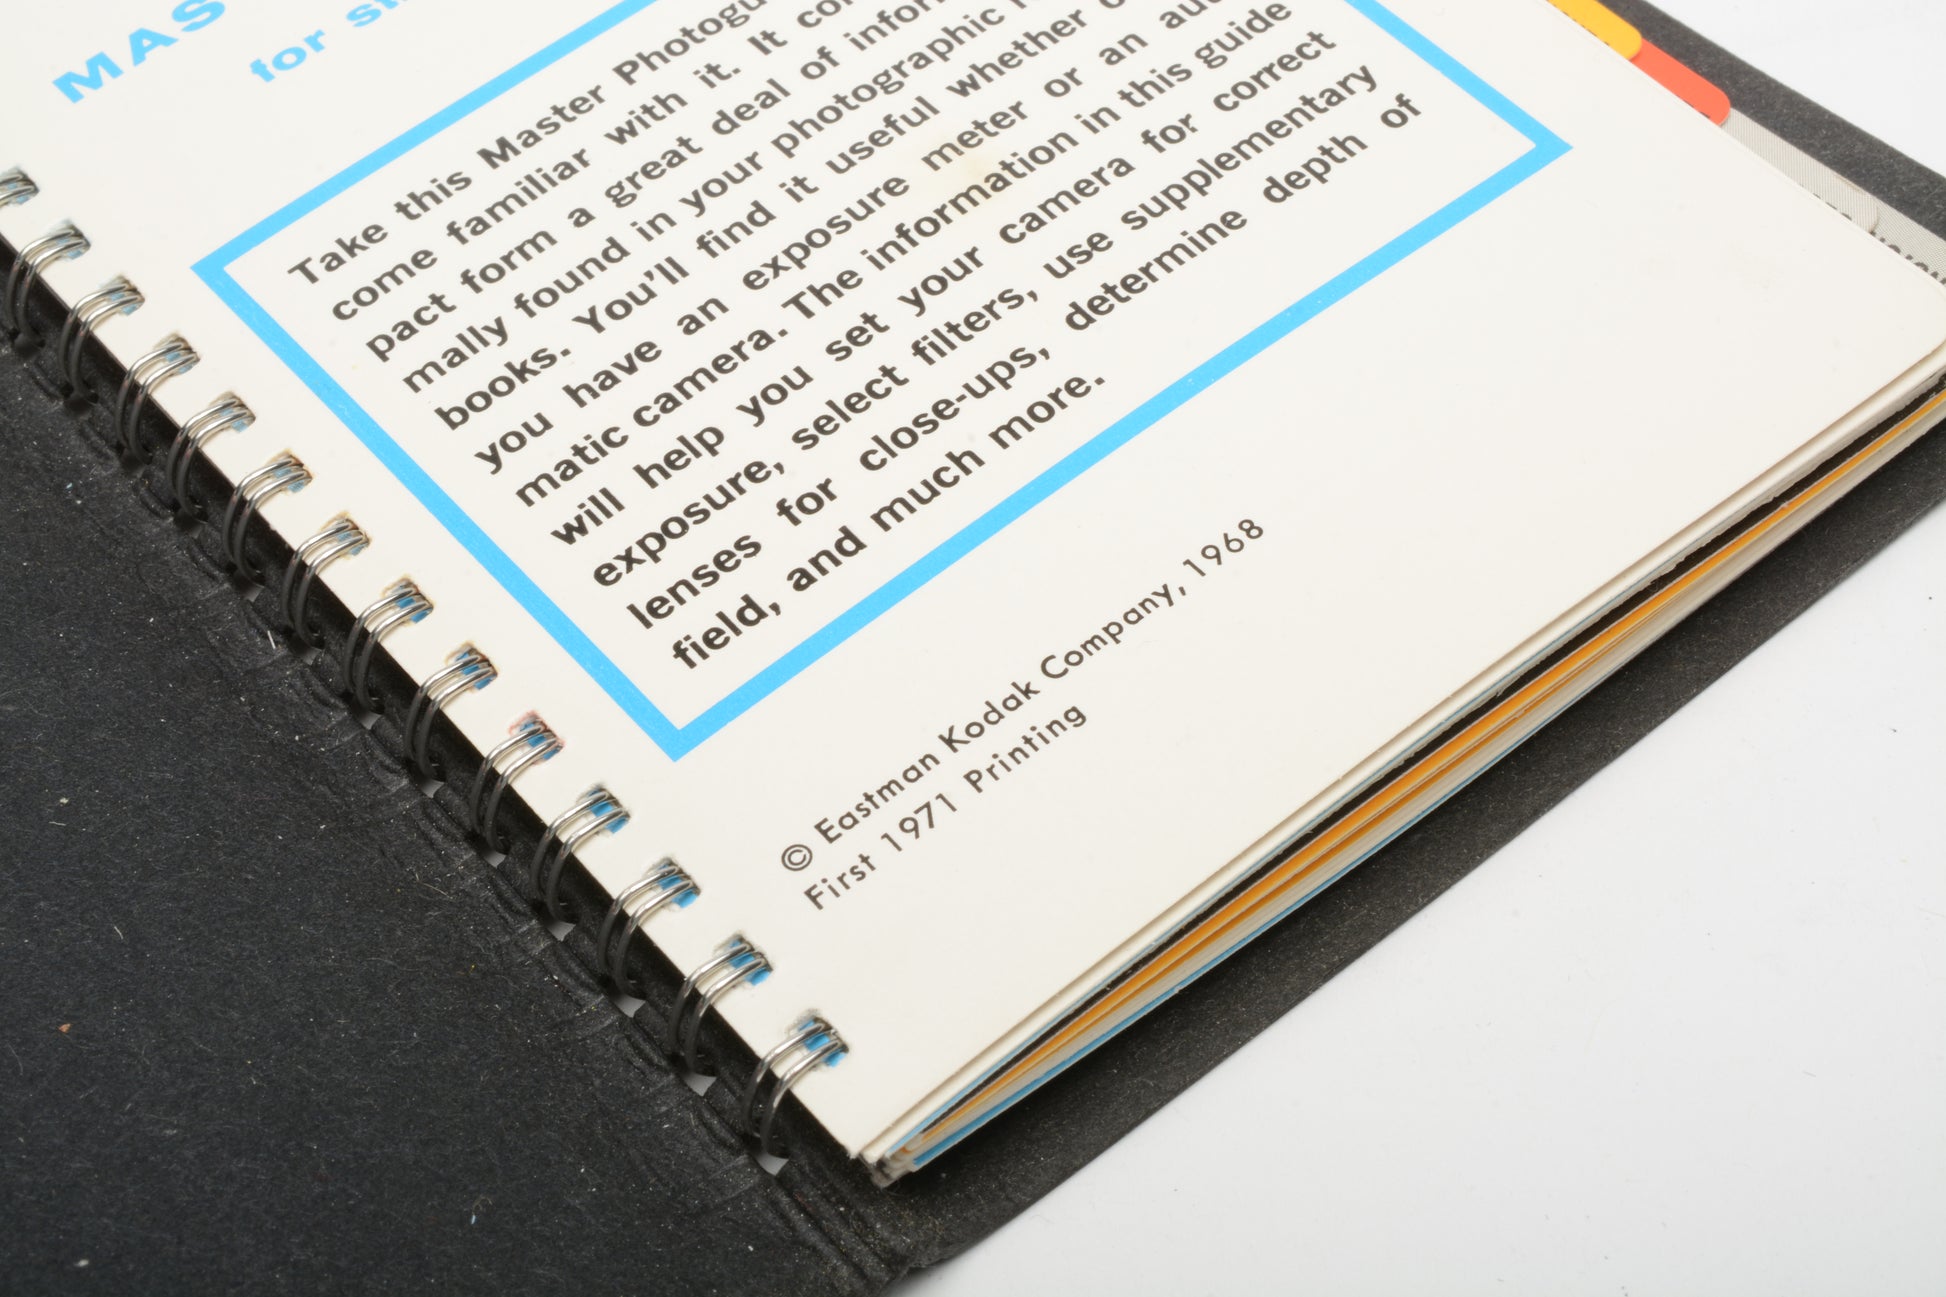 MAS
for
Take this Master
come familiar with it. It
pact form a great deal of
mally found in your photographic
books. You'll find it useful whether
you have an exposure meter or an
matic camera. The information in this guide
will help you set your camera for correct
exposure, select filters, use supplementary
lenses for close-ups, determine depth of
field, and much more.
© Eastman Kodak Company, 1968
First 1971 Printing